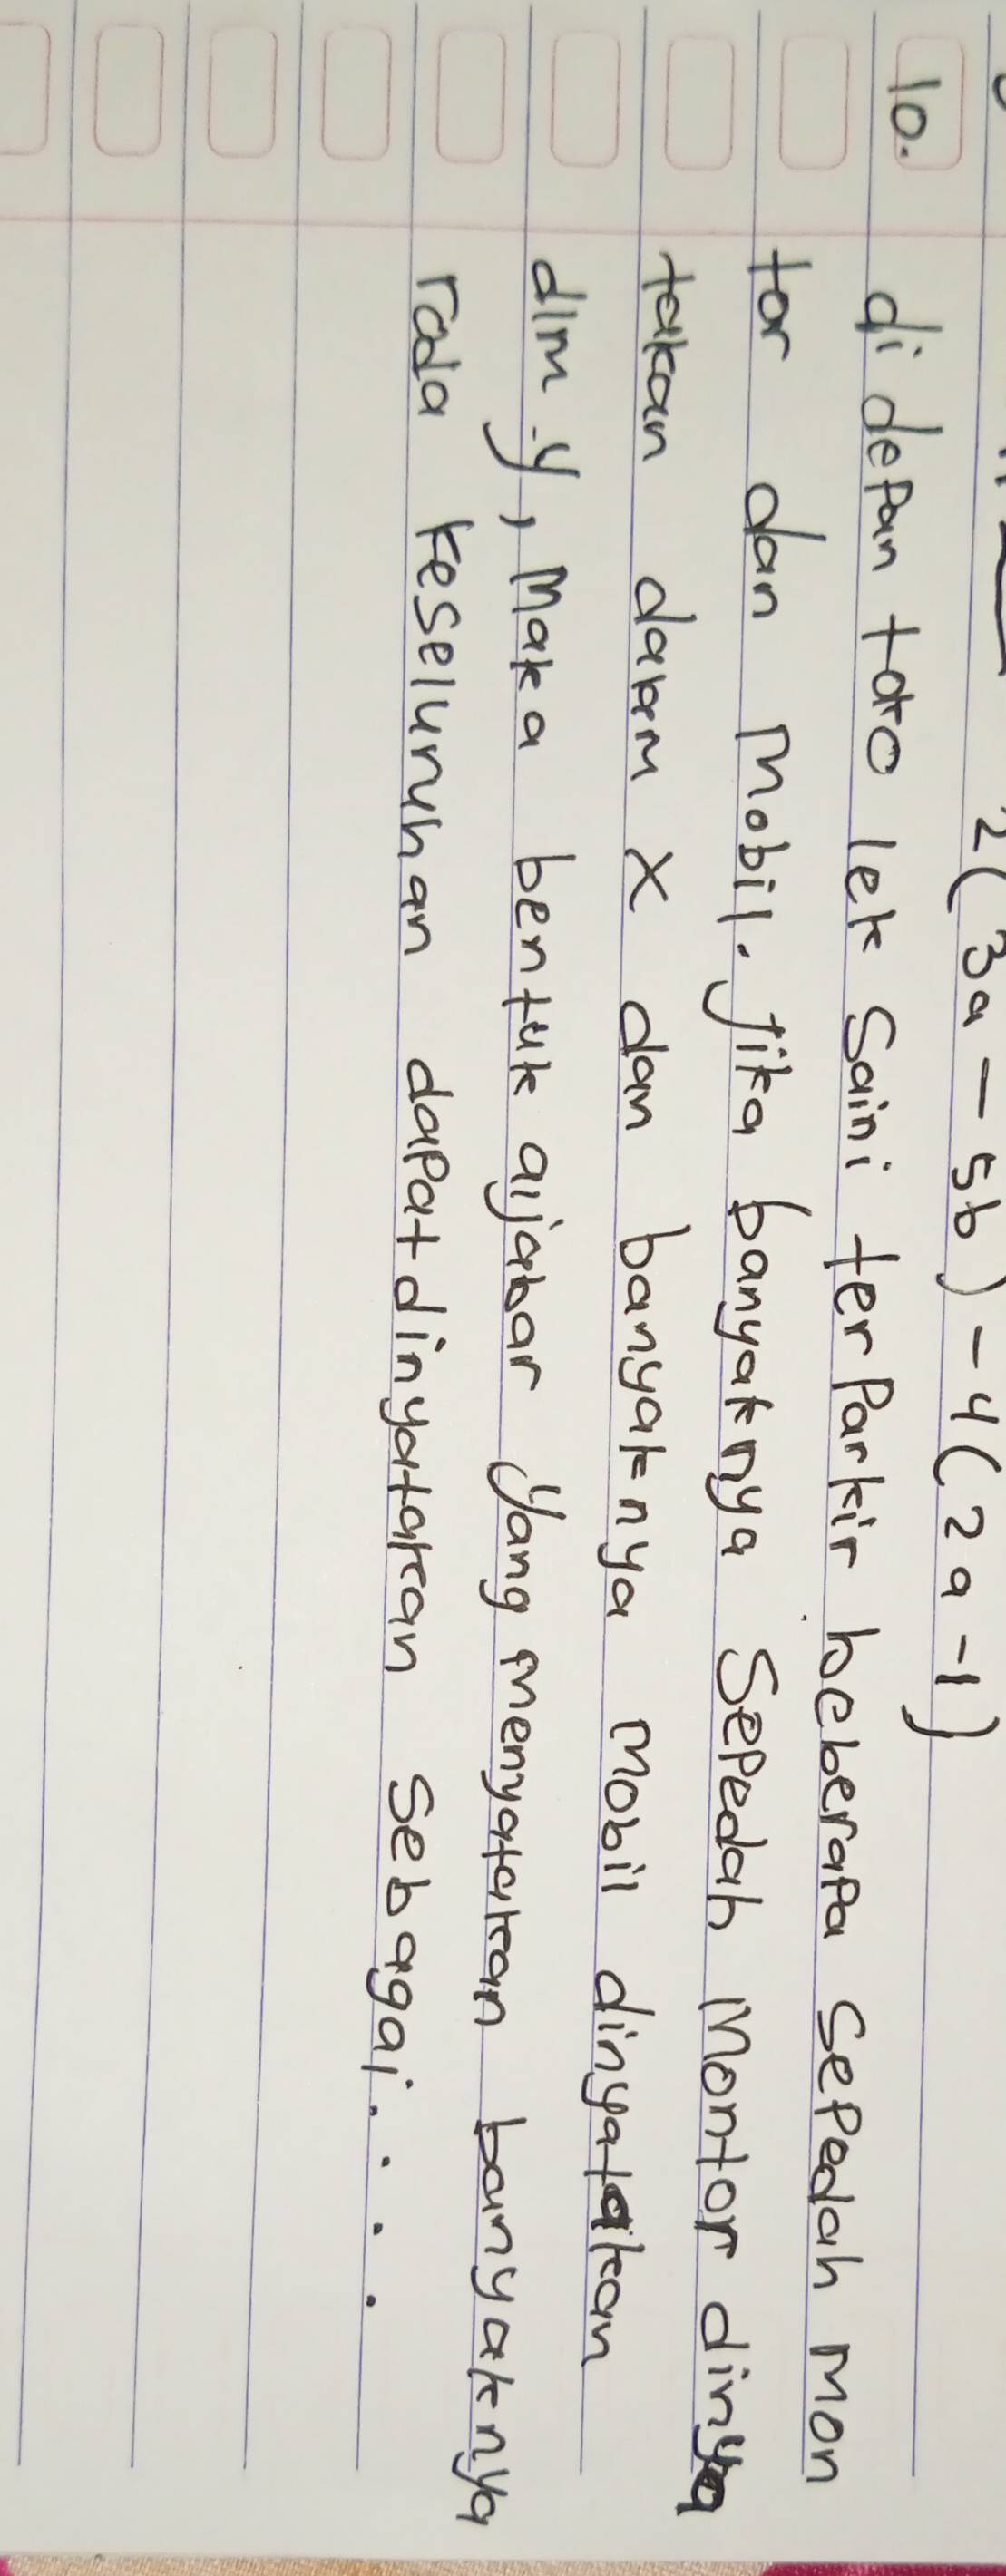 2(3a - 5b) - 4(2a - 1)
10. di depan toko lek Saini terparkir beberapa sepedah mon
tor dan mobil. jika banyaknya sepedah montor dinya
takan dalam x dan banyaknya mobil dinyatakan
dlm y, maka bentuk aljabar yang menyatakan banyaknya
roda keseluruhan dapat dinyatakan sebagai....